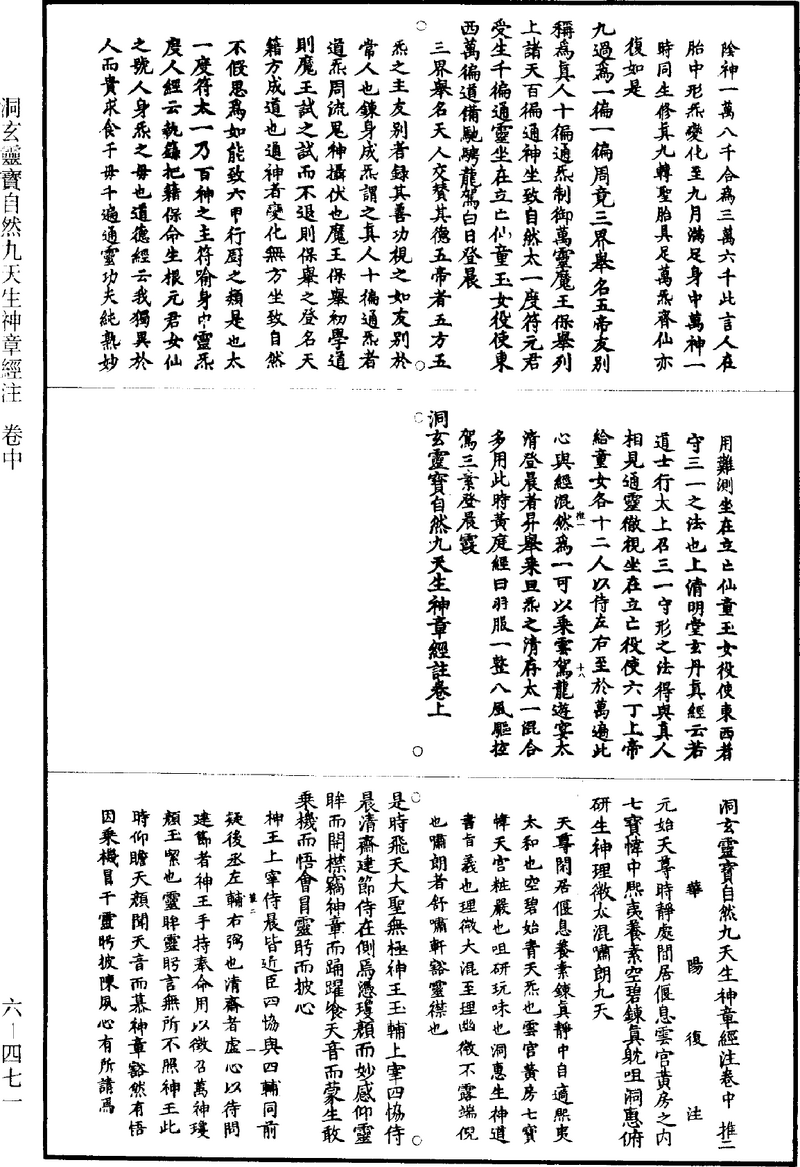 陰神一萬八千合為三萬六千此言人在
胎中形炁變化至九月滿足身中萬神一
時同生修真九轉聖胎具足萬炁齊仙亦
復如是
九過為一徧一徧周竟三界舉名五帝友別
稱為真人十徧通炁制御萬靈魔王保舉列
上諸天百徧通神坐致自然太一度符元君
受生千徧通靈坐在立亡仙童玉女役使東
西萬徧道備馳騁龍駕白日登晨
三界舉名天人交贊其德五帝者五方五
炁之主友別者錄其善功視之如友別於
常人也鍊身成炁謂之真人十徧通炁者
道炁周流鬼神攝伏也魔王保舉初學道
則魔王試之試而不退則保舉之登名天
籍方成道也通神者變化無方坐致自然
不假思為如能致六甲行廚之類是也太
一度符太一乃百神之主符喻身中靈炁
度人經云執籙把籍保命生根元君女仙
之號人身炁之母也道德經云我獨異於
人而貴求食于母千遍通靈功夫純熟妙
用難測坐在立亡仙童玉女役使東西者
守三一之法也上清明堂玄丹真經云若
道士行太上召三一守形之法得與真人
相見通靈徹視坐在立亡役使六丁上帝
給童女各十二人以侍左右至於萬遍此
心與經混然為一可以乘雲駕龍遊宴太
清登晨者昇舉乘旦炁之清存太一混合
多用此時黃庭經曰羽服一整八風驅控
駕三素登晨霞
洞玄靈寶自然九天生神章經註卷上
洞玄靈寶自然九天生神章經注卷中 推二
華陽復注
元始天尊時靜處閒居偃息雲官黃房之內
七寶幃中熙夷養素空碧鍊真耽咀洞惠俯
研生神理微太混嘯朗九天
天尊閒居偃息養素鍊真靜中自適熙夷
太和也空碧始青天炁也雲官黃房七寶
幃天宮粧嚴也咀研玩味也洞惠生神道
書旨義也理微大混至理幽微不露端倪
也嘯朗者舒嘯軒豁靈襟也
是時飛天大聖無極神王玉輔上宰四恊侍
晨清齋建節侍在側焉憑瓊顏而妙感仰靈
眸而開襟竊神章而踊躍飡天音而蒙生敢
乘機而悟會冒靈眄而披心
神王上宰侍晨皆近臣四協與四輔同前
疑後丞左輔右弼也清齋者虛心以待問
建節者神王手持奉命用以徵召萬神瓊
顏玉容也靈眸靈眄言無所不照神王此
時仰瞻天顏聞天音而慕神章豁然有悟
因乘機冒干靈眄披陳夙心有所請焉
洞玄靈寶自然九天生神章經注 卷中
六—四七一